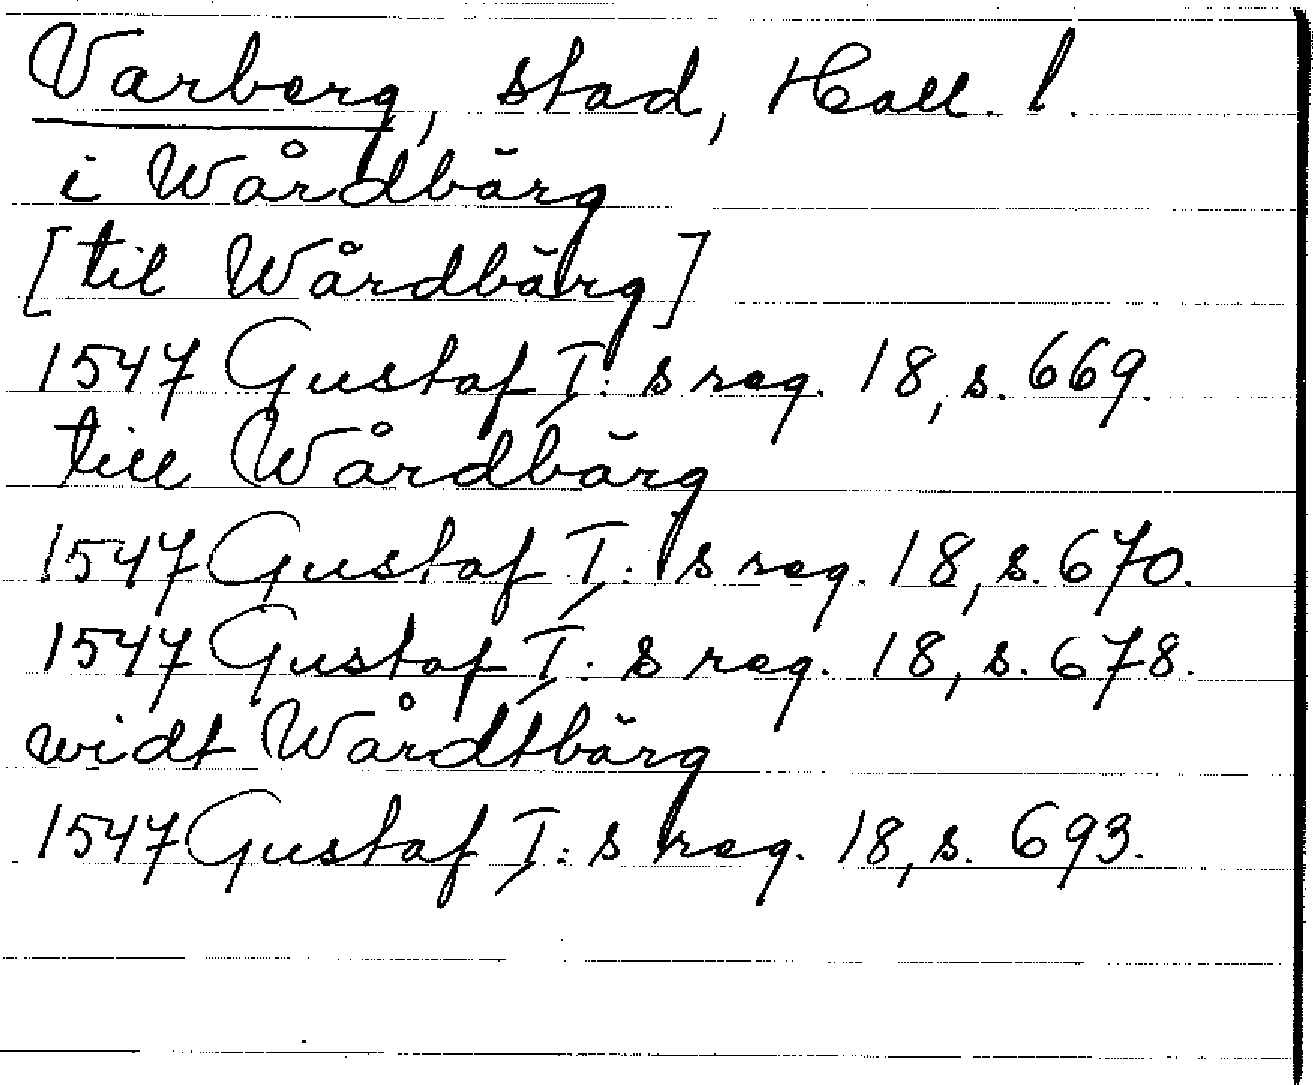 Varberg, stad, Hall. l.
i Wårdbärg
[til Wårdbärg]
1547 Gustaf I: s reg. 18, s. 669.
till Wårdbärg
1547 Gustaf I: s reg. 18, s. 670.
1547 Gustaf I: s reg. 18, s. 678.
widt Wårdtbärg
1547 Gustaf I: s reg. 18, s. 693.